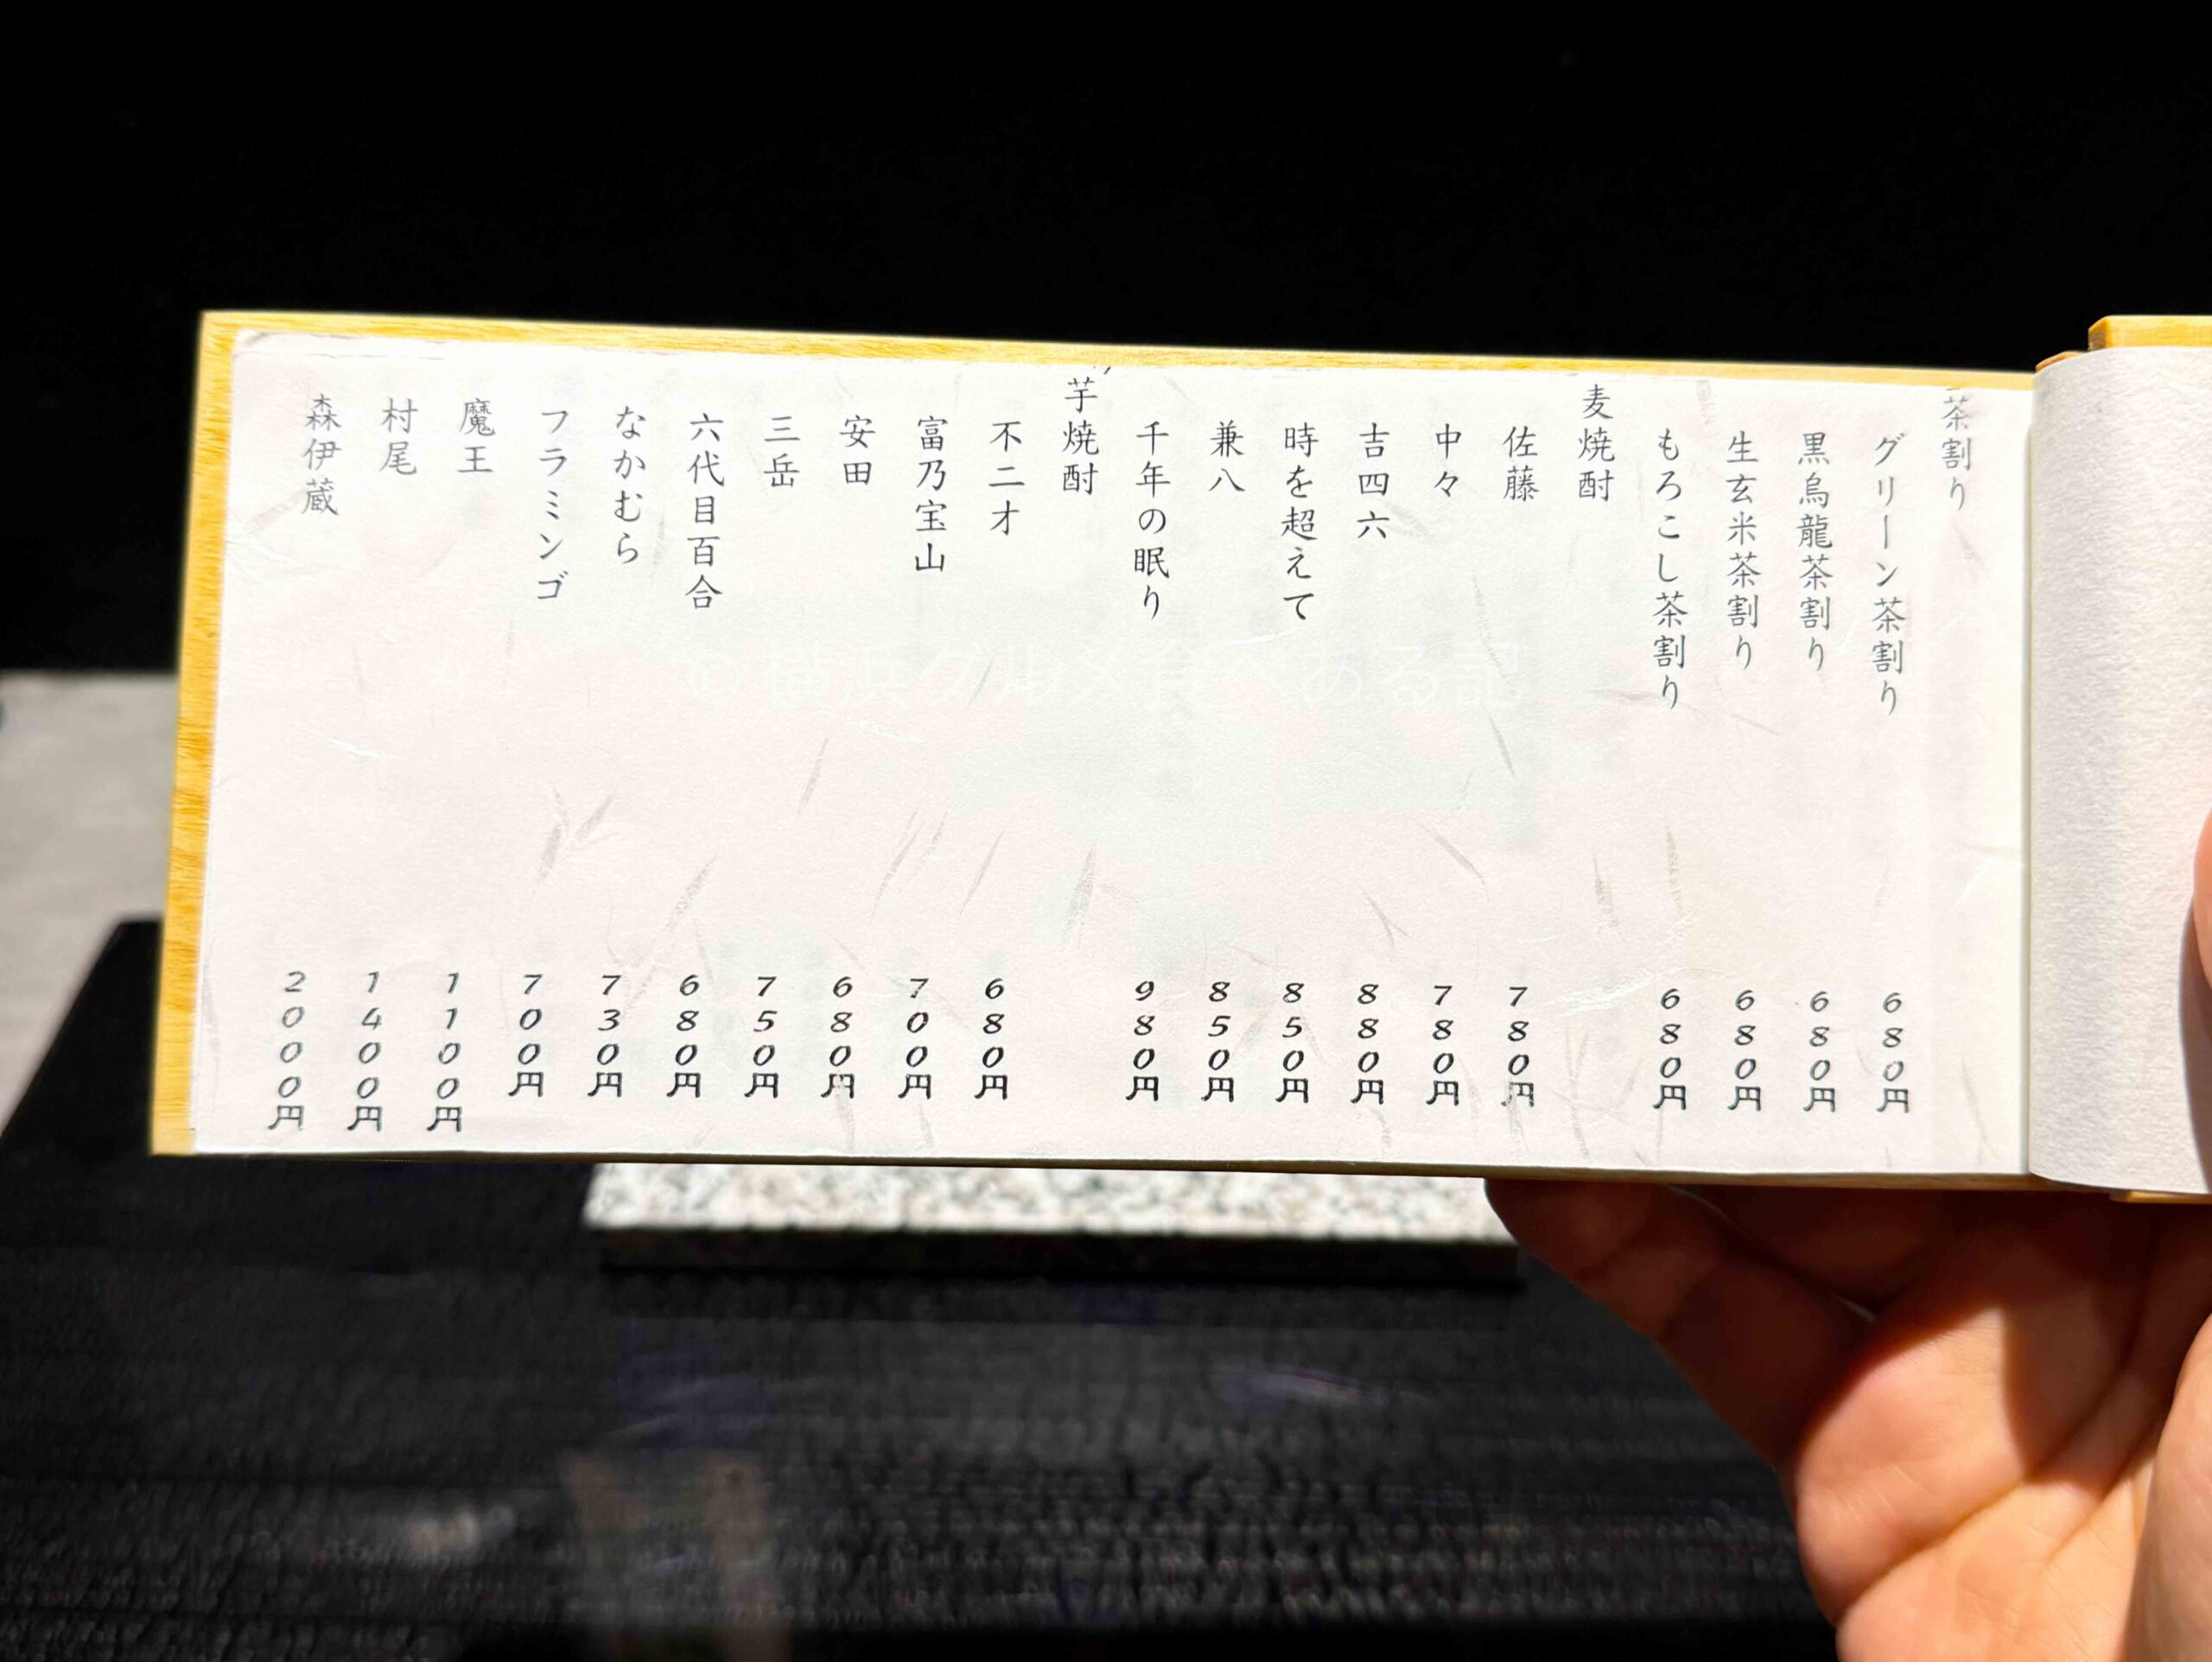 茶割り
グリーン茶割り 680円
黒烏龍茶割り 680円
生玄米茶割り 680円
もろこし茶割り 680円
麦焼酎
佐藤 780円
中々 780円
吉四六 880円
時を超えて 850円
兼八 850円
千年の眠り 980円
芋焼酎
不二才 680円
富乃宝山 700円
安田 680円
三岳 750円
六代目百合 680円
なかむら 730円
フラミンゴ 700円
魔王 1100円
村尾 1400円
森伊蔵 2000円
© 横浜グルメ食べある記